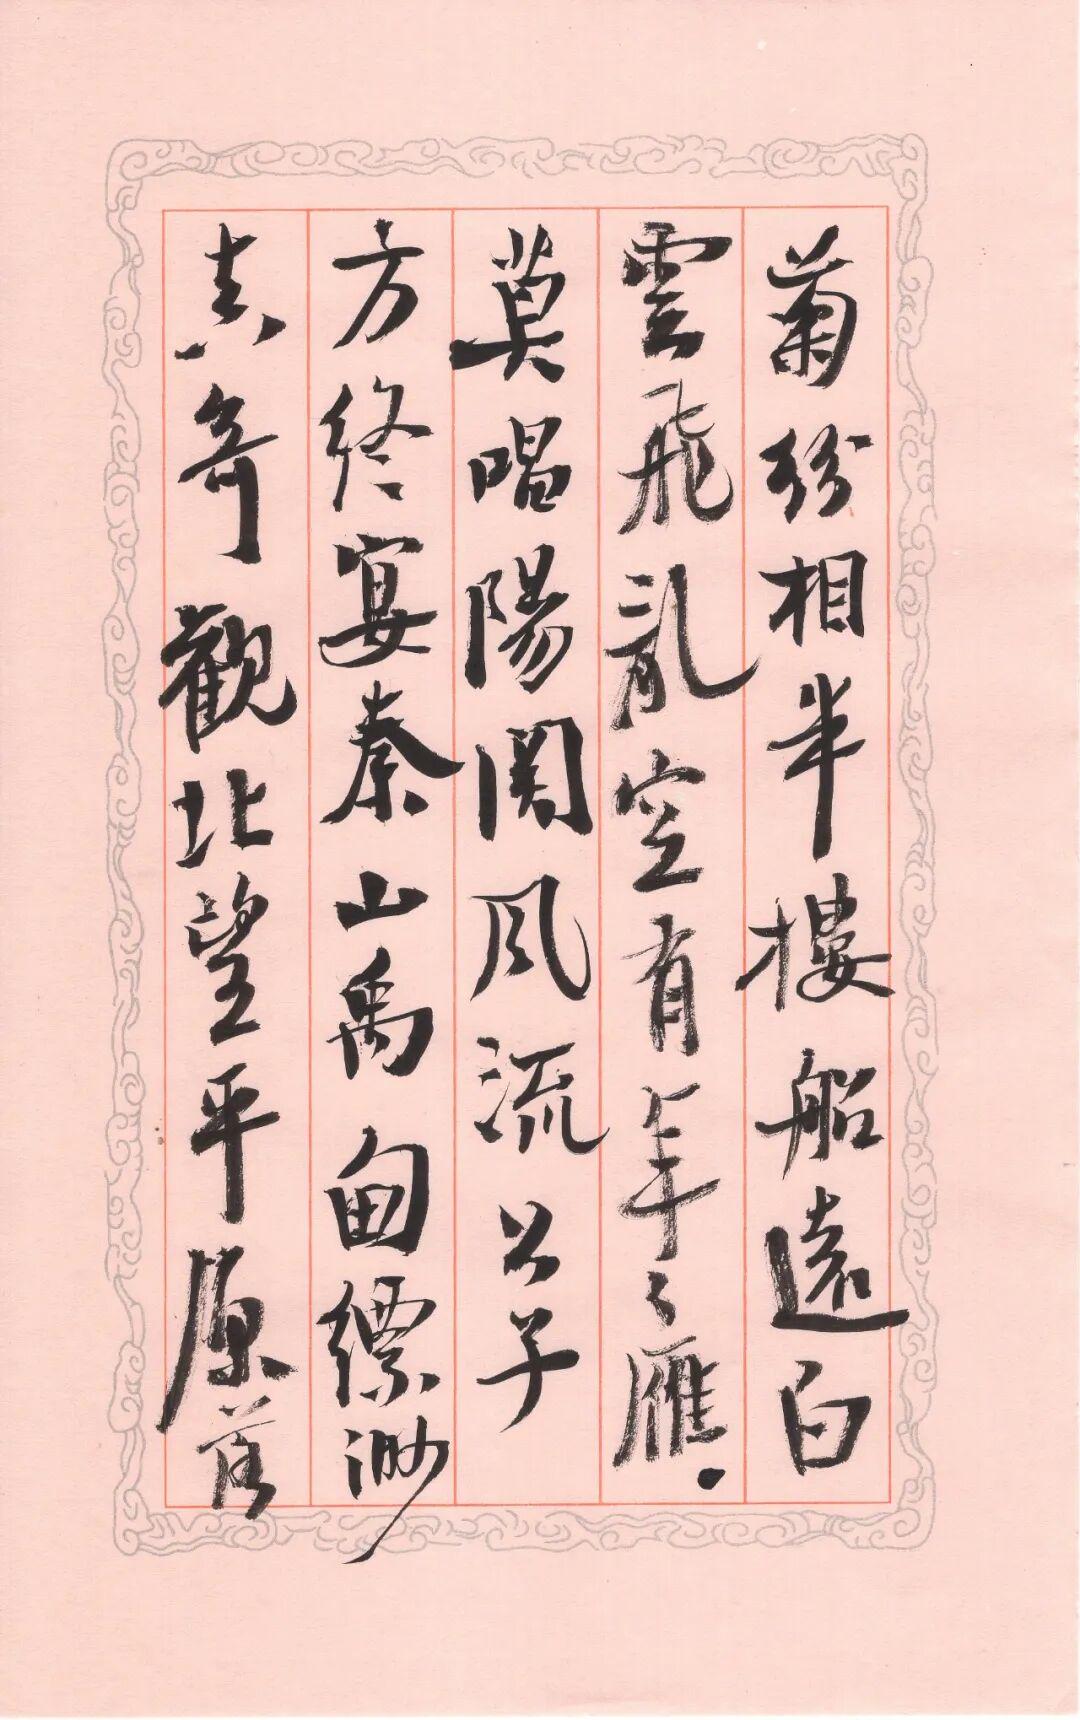 菊紛相半樓船遠白
雲飛亂空有年々雁
莫唱陽関風流公子
方終宴秦山禹甸縹渺
真奇觀北望平原落